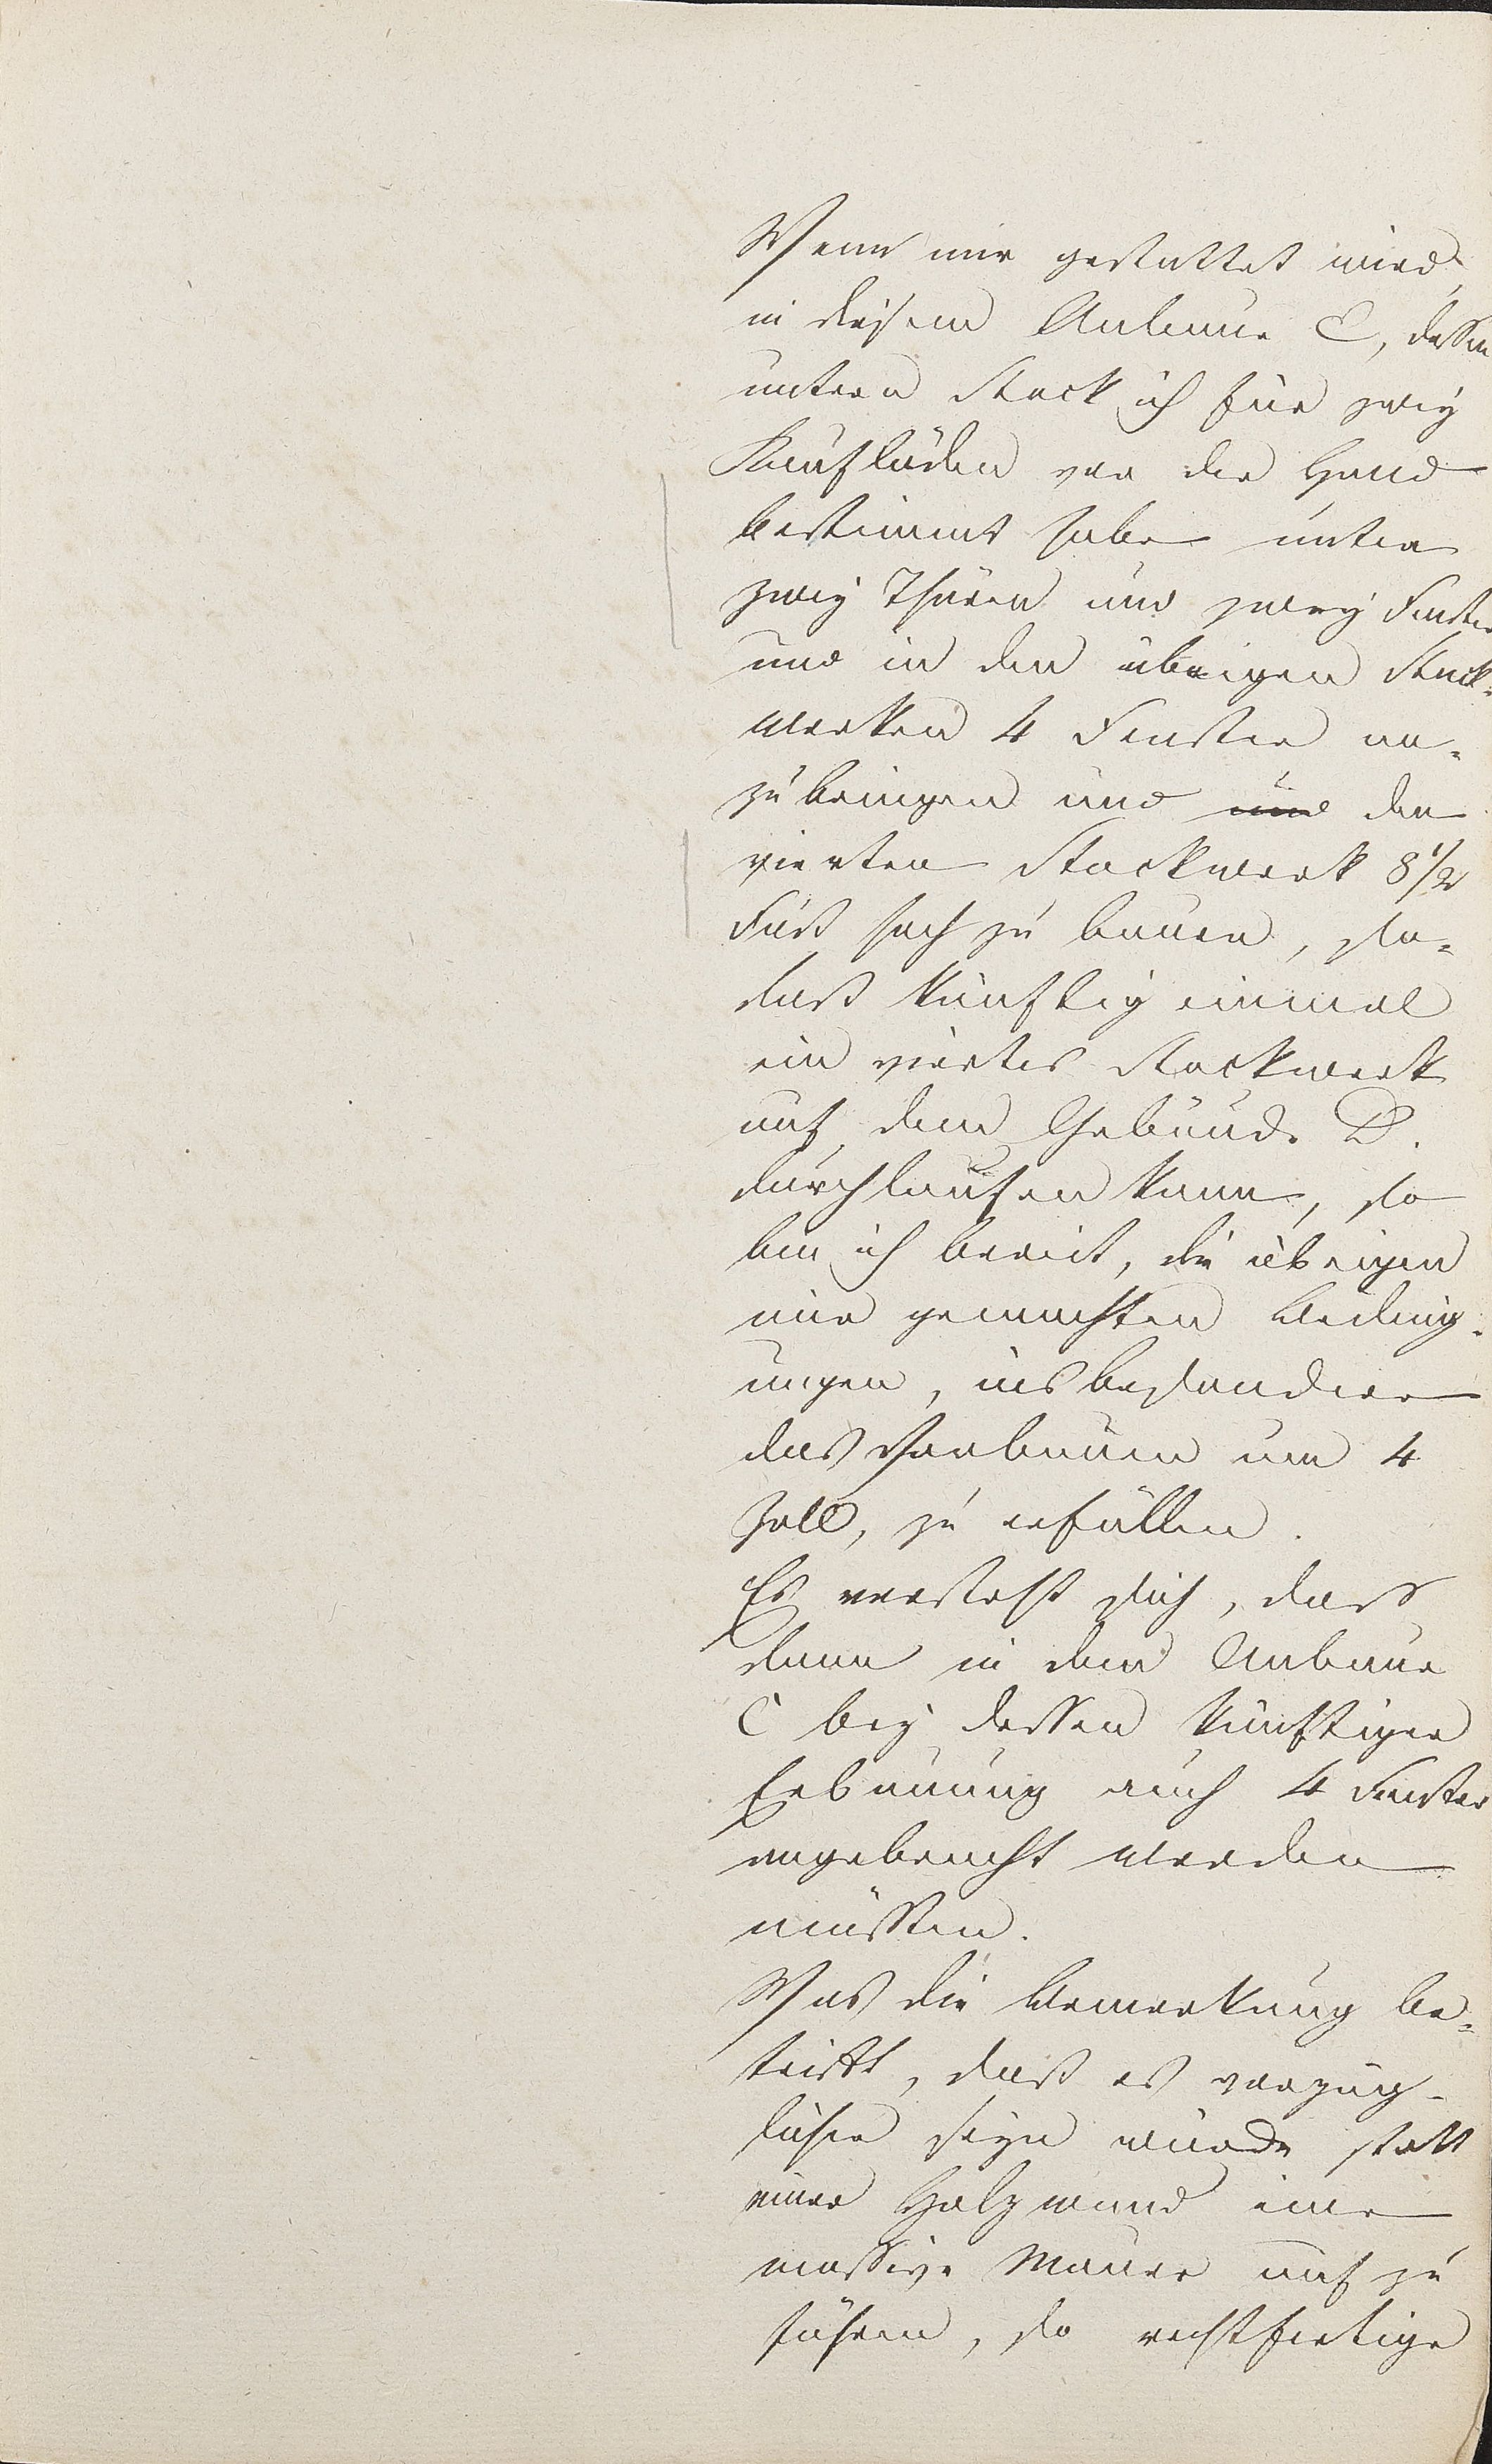 Wenn mir gestattet wird,
in diesem Anbaue C, dessen
untern Stock ich für zwey
Kaufläden vor der Hand
bestimmt habe unten
zwey Thüren und zwey Fenster
und in den übrigen Stock-
werken 4 Fenster an-
zubringen und und den
vierten Stockwerk 8 1/2
Fuß hoch zu bauen, so-
daß künftig einmal
ein viertes Stockwerk
auf dem Gebäude D.
durchlaufen kann, so
bin ich bereit, die übrigen
mir gemachten Beding-
ungen, insbesondere
das Vorbauen um 4
Zoll, zu erfüllen.
Es versteht sich, dass
dann in dem Anbaue
C bey dessen künftiger
Erbauung auch 4 Fenster
angebracht werden
müssten.
Was die Bemerkung be-
trifft, daß es vorzüg-
licher seyn würde statt
einer Holzwand eine
massive Mauer auf zu
führen, so rechtfertige